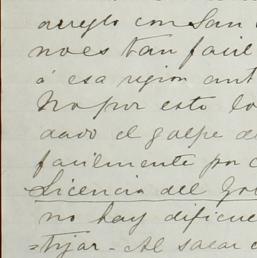 arreglo con San
no es tan facil
á esa region ant
No por esto lo
dado el golpe de
facilmente por c
Licencia del Go
no hay dificul
=tijar - Al sacar